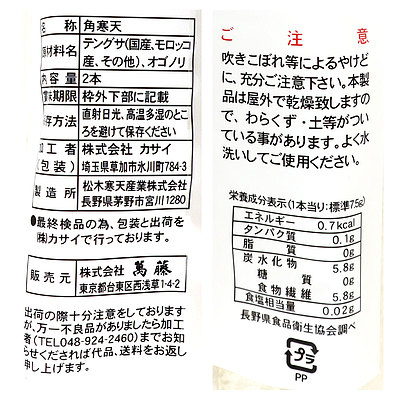 名称 角寒天
原材料名 テングサ(国産、モロッコ
産、その他)、オゴノリ
内容量 2本
賞味期限 枠外下部に記載
保存方法 直射日光、高温多湿のと
ころを避けて保存ください
加工者 株式会社 カサイ
(包装) 埼玉県草加市氷川町784-3
製造所 松木寒天産業株式会社
長野県茅野市宮川1280
●最終検品の為、包装と出荷を
㈱カサイで行っております。
販売元 株式会社 萬藤
東京都台東区西浅草1-4-2
出荷の際十分注意をしております
が、万一不良品がありましたら加工
者(TEL048-924-2460)までお知
らせくだされば代品、送料をお返し
申し上げます。
ご注意
吹きこぼれ等によるやけど
に、充分ご注意下さい。本製
品は屋外で乾燥致しますの
で、わらくず・土等がつい
ている事があります。よく水
洗いしてご使用ください。
栄養成分表示(1本当り:標準7.5g)
エネルギー 0.7kcal
タンパク質 0.1g
脂質 0g
炭水化物 5.8g
糖質 0g
食物繊維 5.8g
食塩相当量 0.02g
長野県食品衛生協会調べ
プラ
PP